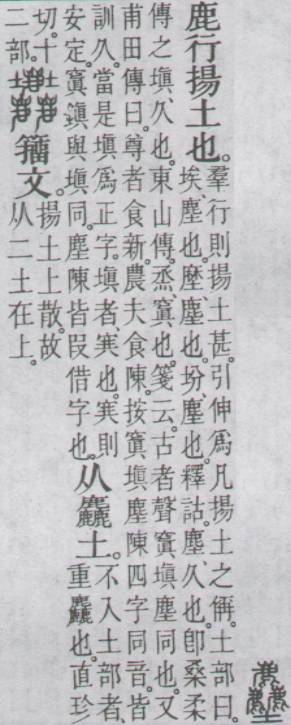 鹿行揚土也。
羣行則揚土甚。引伸爲凡揚土之偁。土部曰。
埃、塵也。塺、塵也。坋、塵也。釋詁。塵、久也。卽桑柔
傳之塡、久也。東山傳。烝、窴也。箋云。古者聲窴塡塵同也。又
甫田傳曰。尊者食新。農夫食陳。按窴塡塵陳四字同音。皆
訓久。當是塡爲正字。塡者、寒也。寒則
安定。窴鎭與塡同。塵陳皆叚借字也。
从麤土。
不入土部者、
重麤也。直珍
切。十
二部。
籒文。
揚土上散。故
从二土在上。